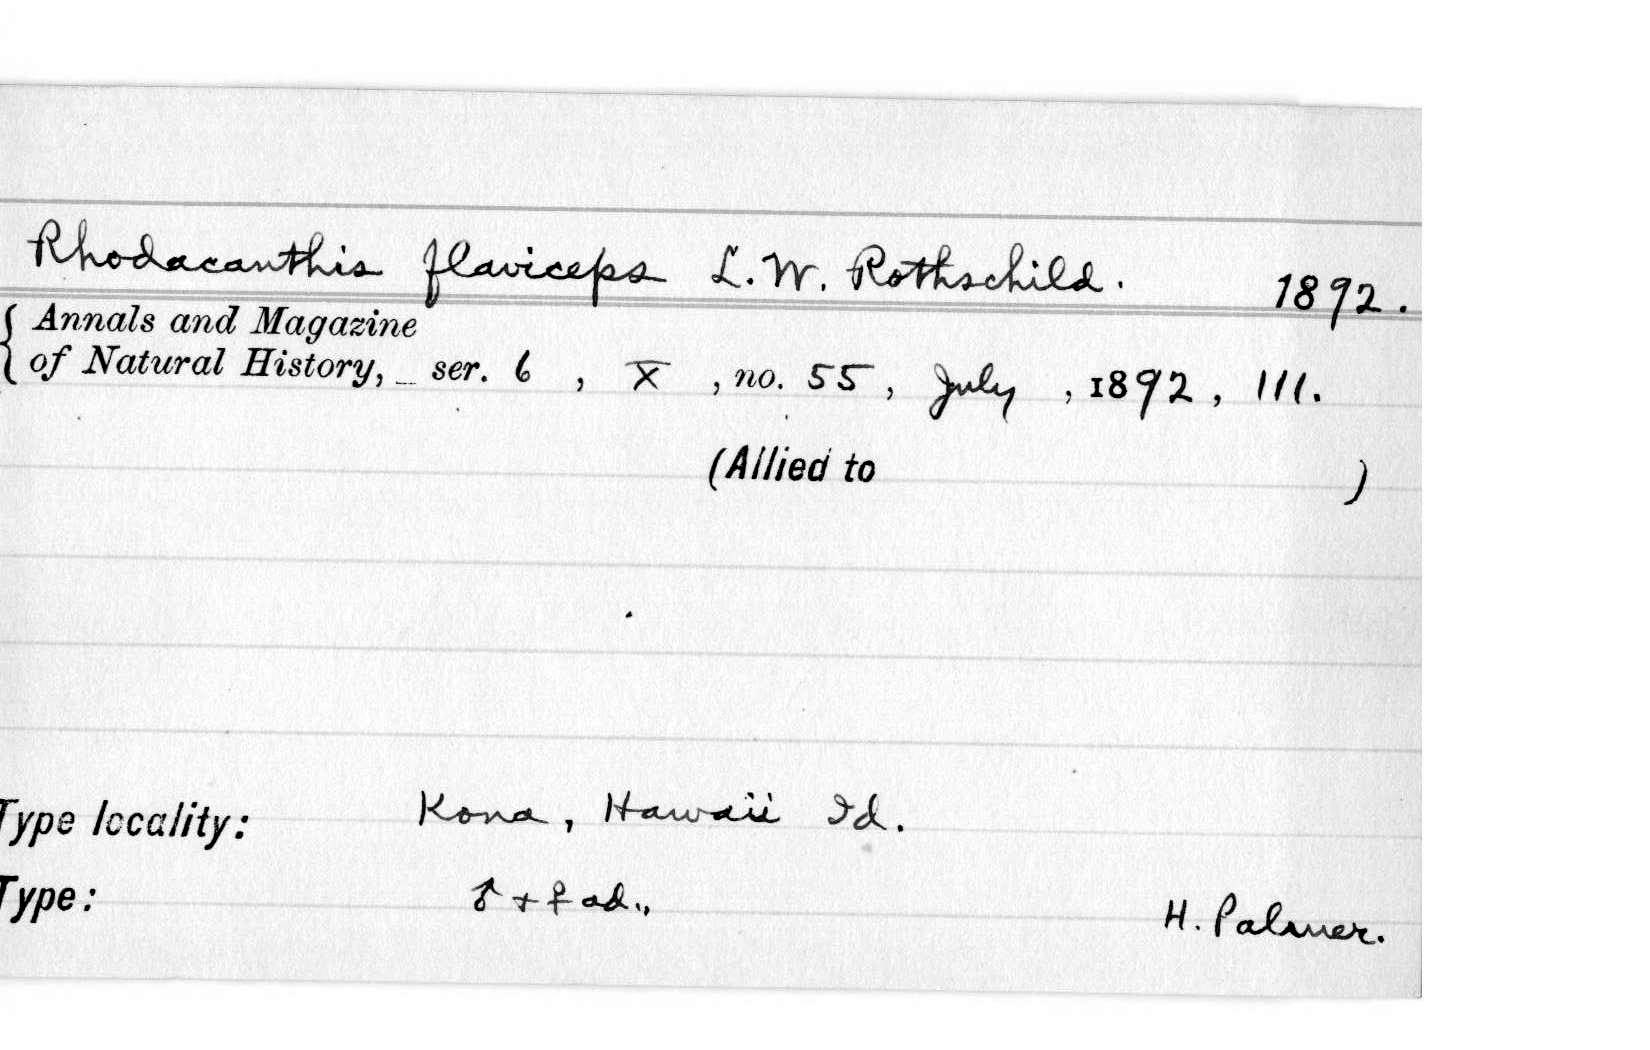 Rhodacanthis flaviceps L. W. Rothschild. 1892.
{ Annals and Magazine
of Natural History, ser. 6, X, no. 55, July, 1892, 111.
(Allied to )
Type locality: Kona, Hawaii Id.
Type: ♂ + ♀ ad., H. Palmer.